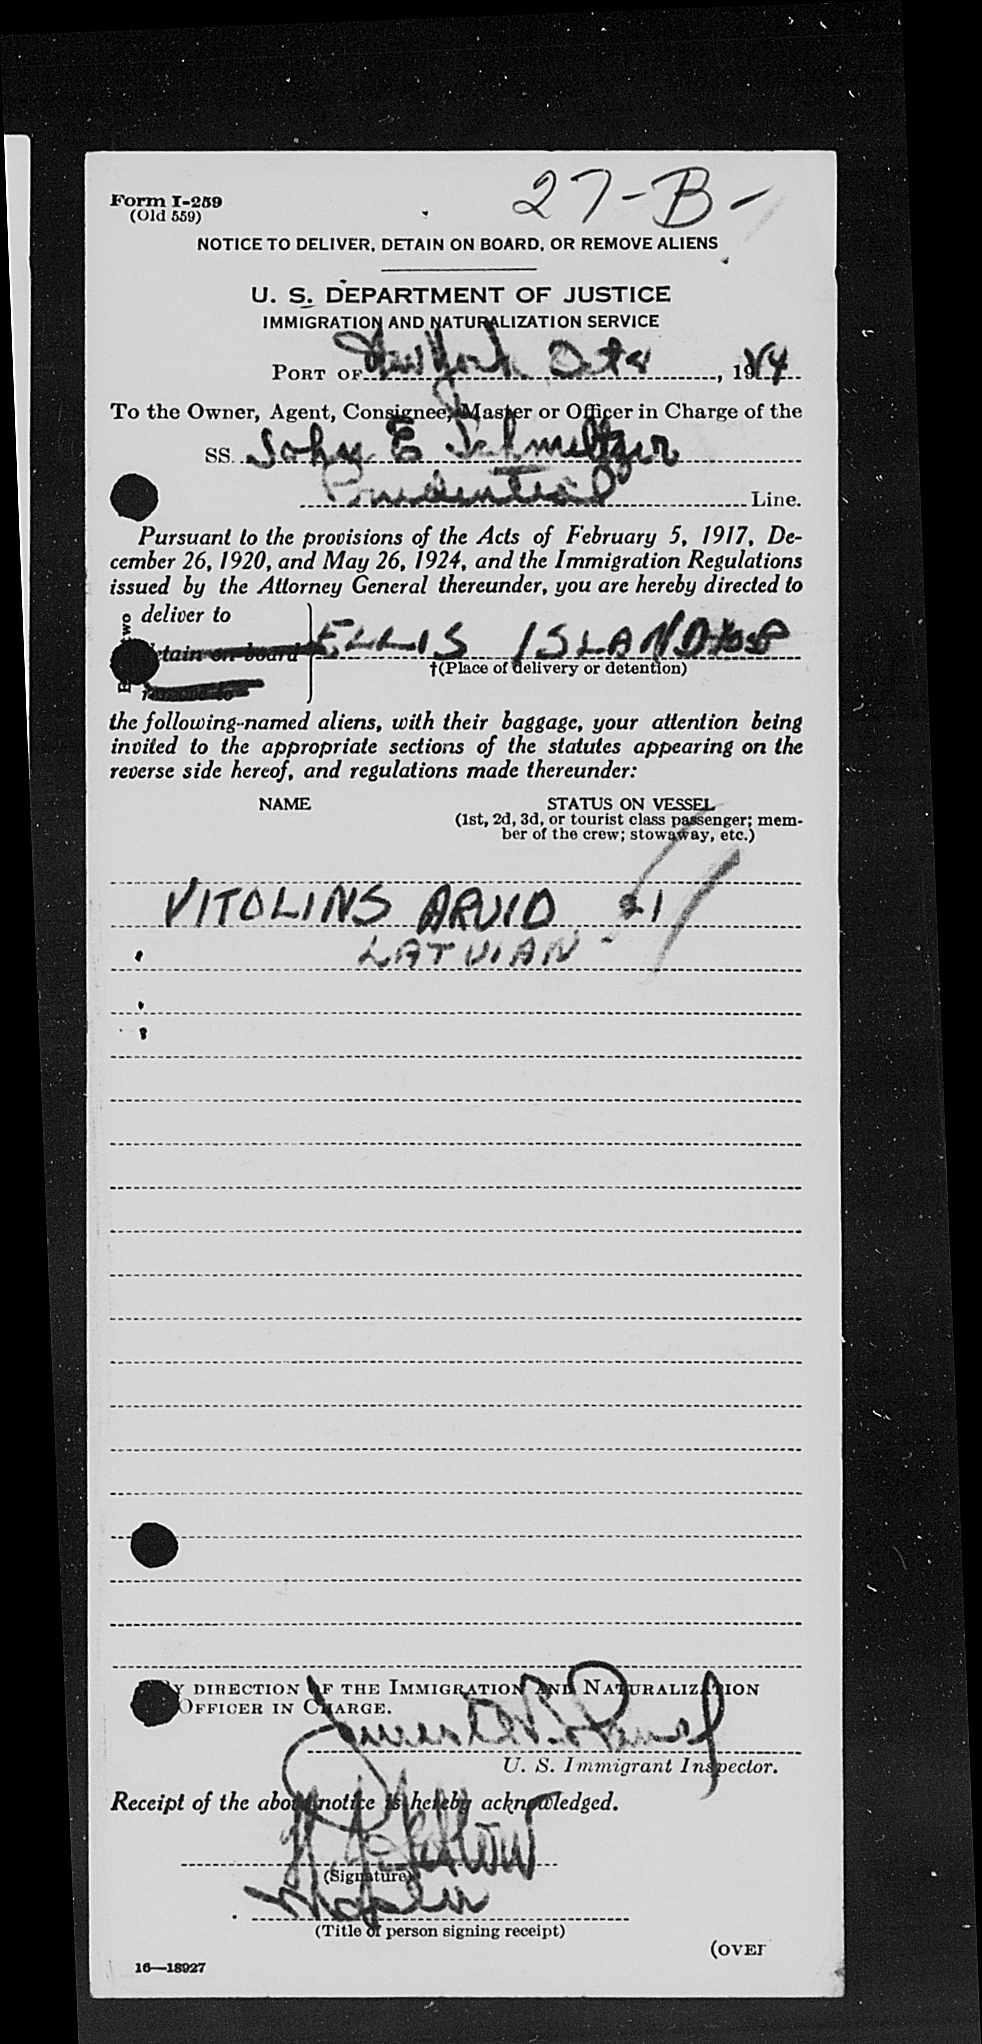 27-B-
Form I-259
(Old 559)
NOTICE TO DELIVER, DETAIN ON BOARD, OR REMOVE ALIENS
U. S. DEPARTMENT OF JUSTICE
IMMIGRATION AND NATURALIZATION SERVICE
PORT OF New York Oct 8, 1944
To the Owner, Agent, Consignee, Master or Officer in Charge of the
SS. John E Schmeltzer
Prudential Line.
Pursuant to the provisions of the Acts of February 5, 1917, De-
cember 26, 1920, and May 26, 1924, and the Immigration Regulations
issued by the Attorney General thereunder, you are hereby directed to
deliver to
tain on board ELLIS ISLAND HOSP
†(Place of delivery or detention)
the following-named aliens, with their baggage, your attention being
invited to the appropriate sections of the statutes appearing on the
reverse side hereof, and regulations made thereunder:
NAME STATUS ON VESSEL
(1st, 2d, 3d, or tourist class passenger; mem-
ber of the crew; stowaway, etc.)
VITOLINS ARVID 21
LATVIAN
Y DIRECTION OF THE IMMIGRATION AND NATURALIZATION
OFFICER IN CHARGE.
U. S. Immigrant Inspector.
Receipt of the above notice is hereby acknowledged.
(Signature)
(Title of person signing receipt)
(OVER
16—18927